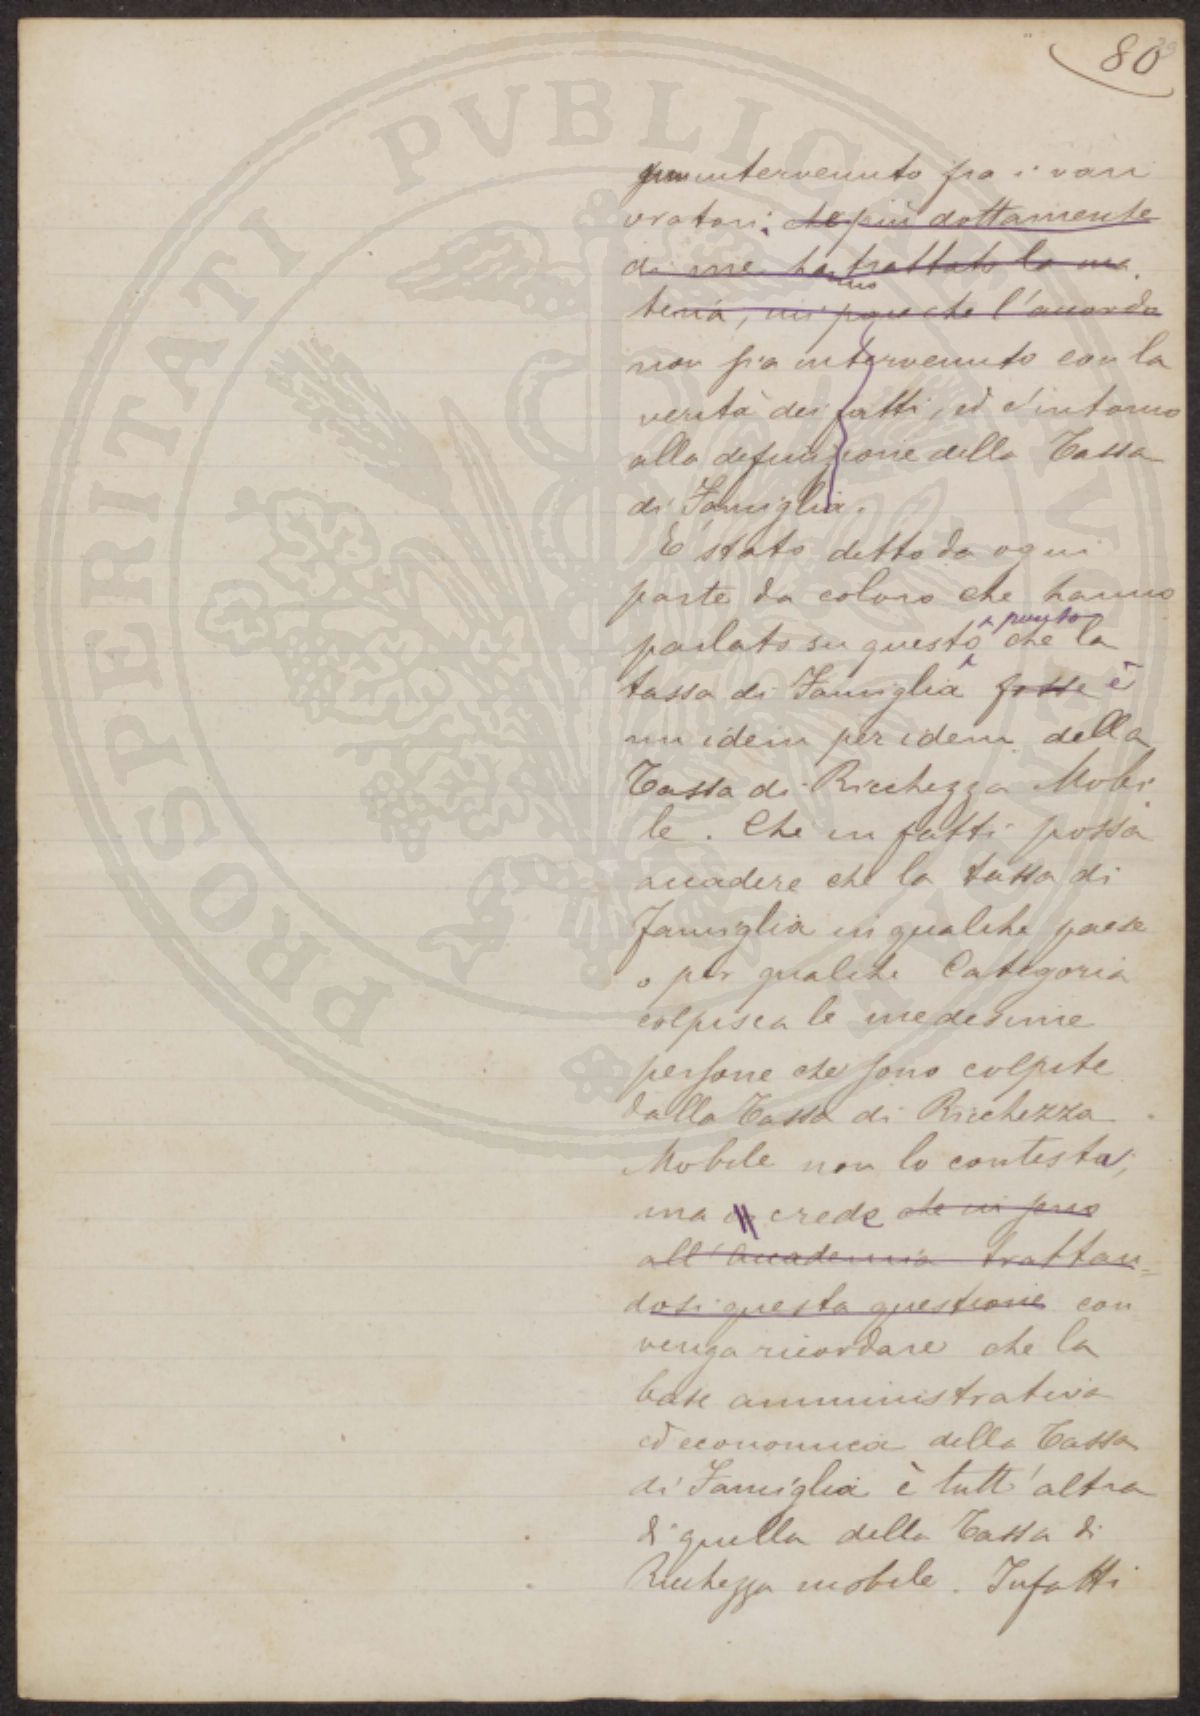 80
intervenuto fra i vari
oratori; che più dottamente
di me hanno trattato la ma-
teria, mi pare che l'accordo
non sia intervenuto con la
verità dei fatti, ed è intorno
alla definizione della Tassa
di Famiglia.
È stato detto da ogni
parte da coloro che hanno
parlato su questo punto che la
tassa di Famiglia fosse è
un idem per idem della
Tassa di Ricchezza Mobi
le. Che in fatti possa
accadere che la tassa di
Famiglia in qualche paese
o per qualche Categoria
colpisca le medesime
persone che sono colpite
dalla Tassa di Ricchezza
Mobile non lo contesta,
ma crede che in seno
all'Accademia trattan=
dosi questa questione con
venga ricordare che la
base amministrativa
ed economica della Tassa
di Famiglia è tutt'altra
di quella della Tassa di
Ricchezza mobile. Infatti
PROSPERITATI PVBLICAE